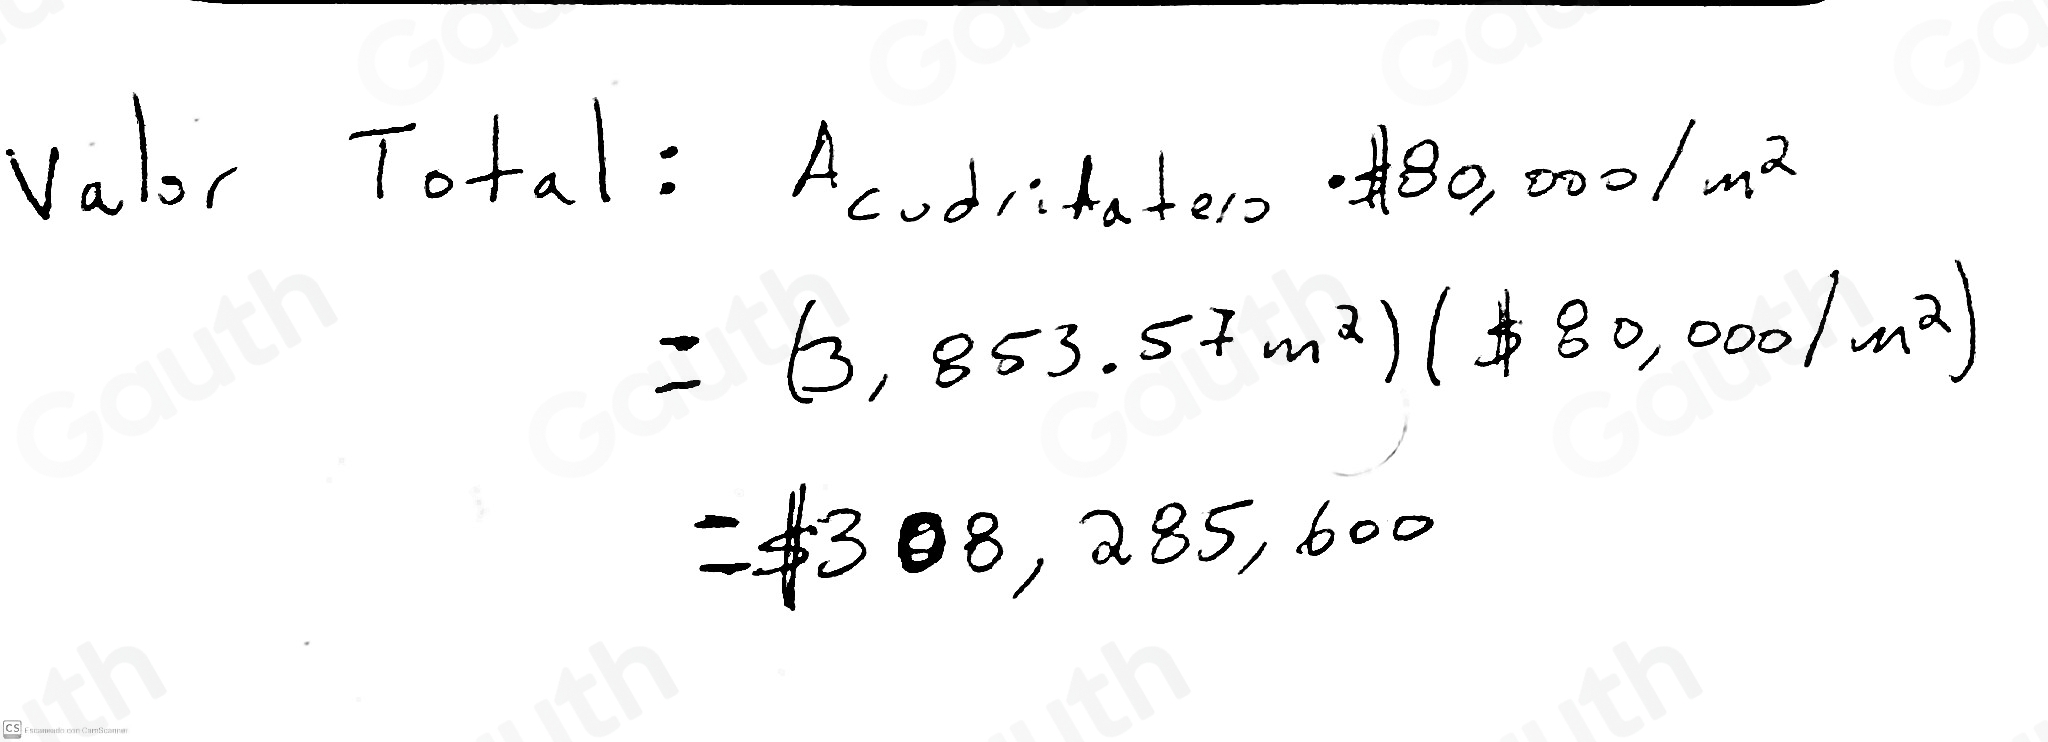 Valor Total: A cudrilatero · $80,000/m²
= (3,853.57 m²)($80,000/m²)
= $308,285,600
CS Escaneado con CamScanner
Gauth